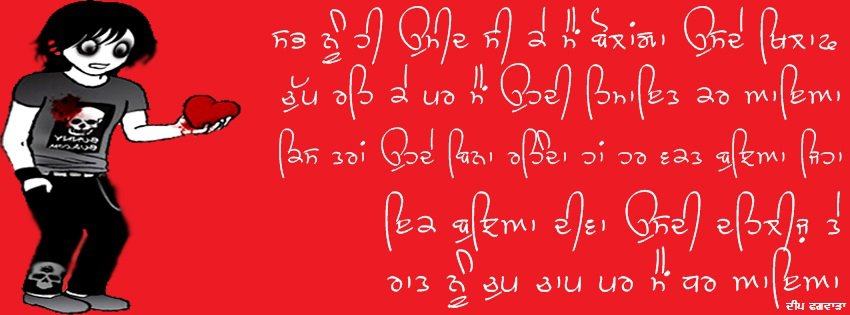 ਸਭ ਨੂੰ ਹੀ ਉਮੀਦ ਸੀ ਕੇ ਮੈਂ ਬੋਲਾਂਗਾ ਉਸਦੇ ਖਿਲਾਫ
ਚੁੱਪ ਰਹਿ ਕੇ ਪਰ ਮੈਂ ਉਹਦੀ ਹਿਮਾਇਤ ਕਰ ਆਇਆ
ਕਿਸ ਤਰਾਂ ਉਹਦੇ ਬਿਨਾ ਰਹਿੰਦਾ ਹਾਂ ਹਰ ਵਕਤ ਬੁਝਿਆ ਜਿਹਾ
ਇਕ ਬੁਝਿਆ ਦੀਵਾ ਉਸਦੀ ਦਹਿਲੀਜ਼ ਤੇ
ਰਾਤ ਨੂੰ ਚੁਪ ਚਾਪ ਪਰ ਮੈਂ ਧਰ ਆਇਆ
ਦੀਪ ਫਗਵਾੜਾ